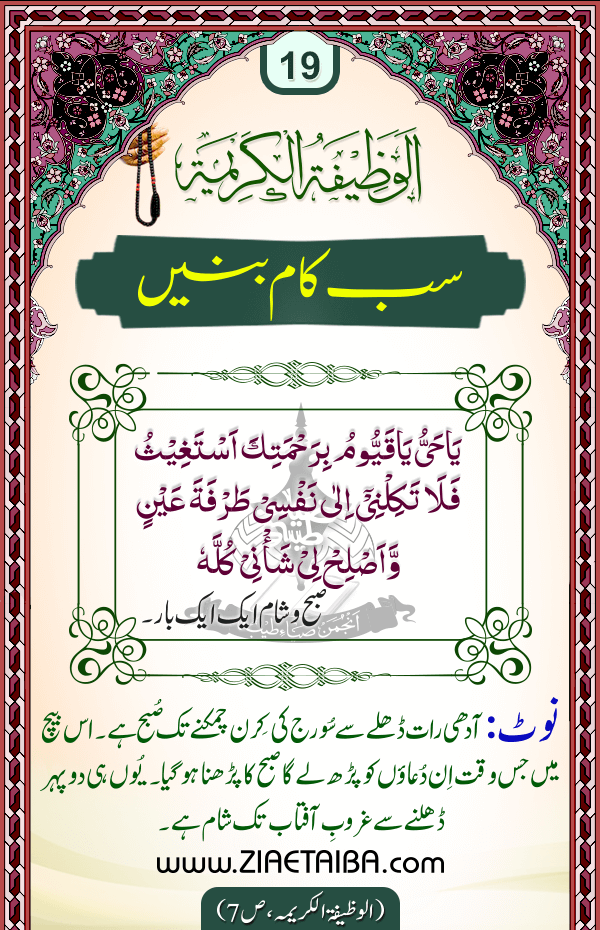 19
اَلْوَظِیْفَۃُ الْکَرِیْمَۃ
سب کام بنیں
یَاحَیُّ یَاقَیُّوْمُ بِرَحْمَتِكَ اَسْتَغِیْثُ
فَلَا تَكِلْنِیْۤ اِلٰی نَفْسِیْ طَرْفَةَ عَیْنٍ
وَّاَصْلِحْ لِیْ شَاْنِیْ كُلَّهٗ
صبح و شام ایک ایک بار۔
انجمن ضیاء طیبہ
نوٹ: آدھی رات ڈھلے سے سُورج کی کِرن چمکنے تک صُبح ہے۔ اس بیچ
میں جس وقت اِن دُعاؤں کو پڑھ لے گا صبح کا پڑھنا ہو گیا۔ یُوں ہی دوپہر
ڈھلنے سے غروبِ آفتاب تک شام ہے۔
www.ZIAETAIBA.com
(الوظیفۃ الکریمہ، ص7)